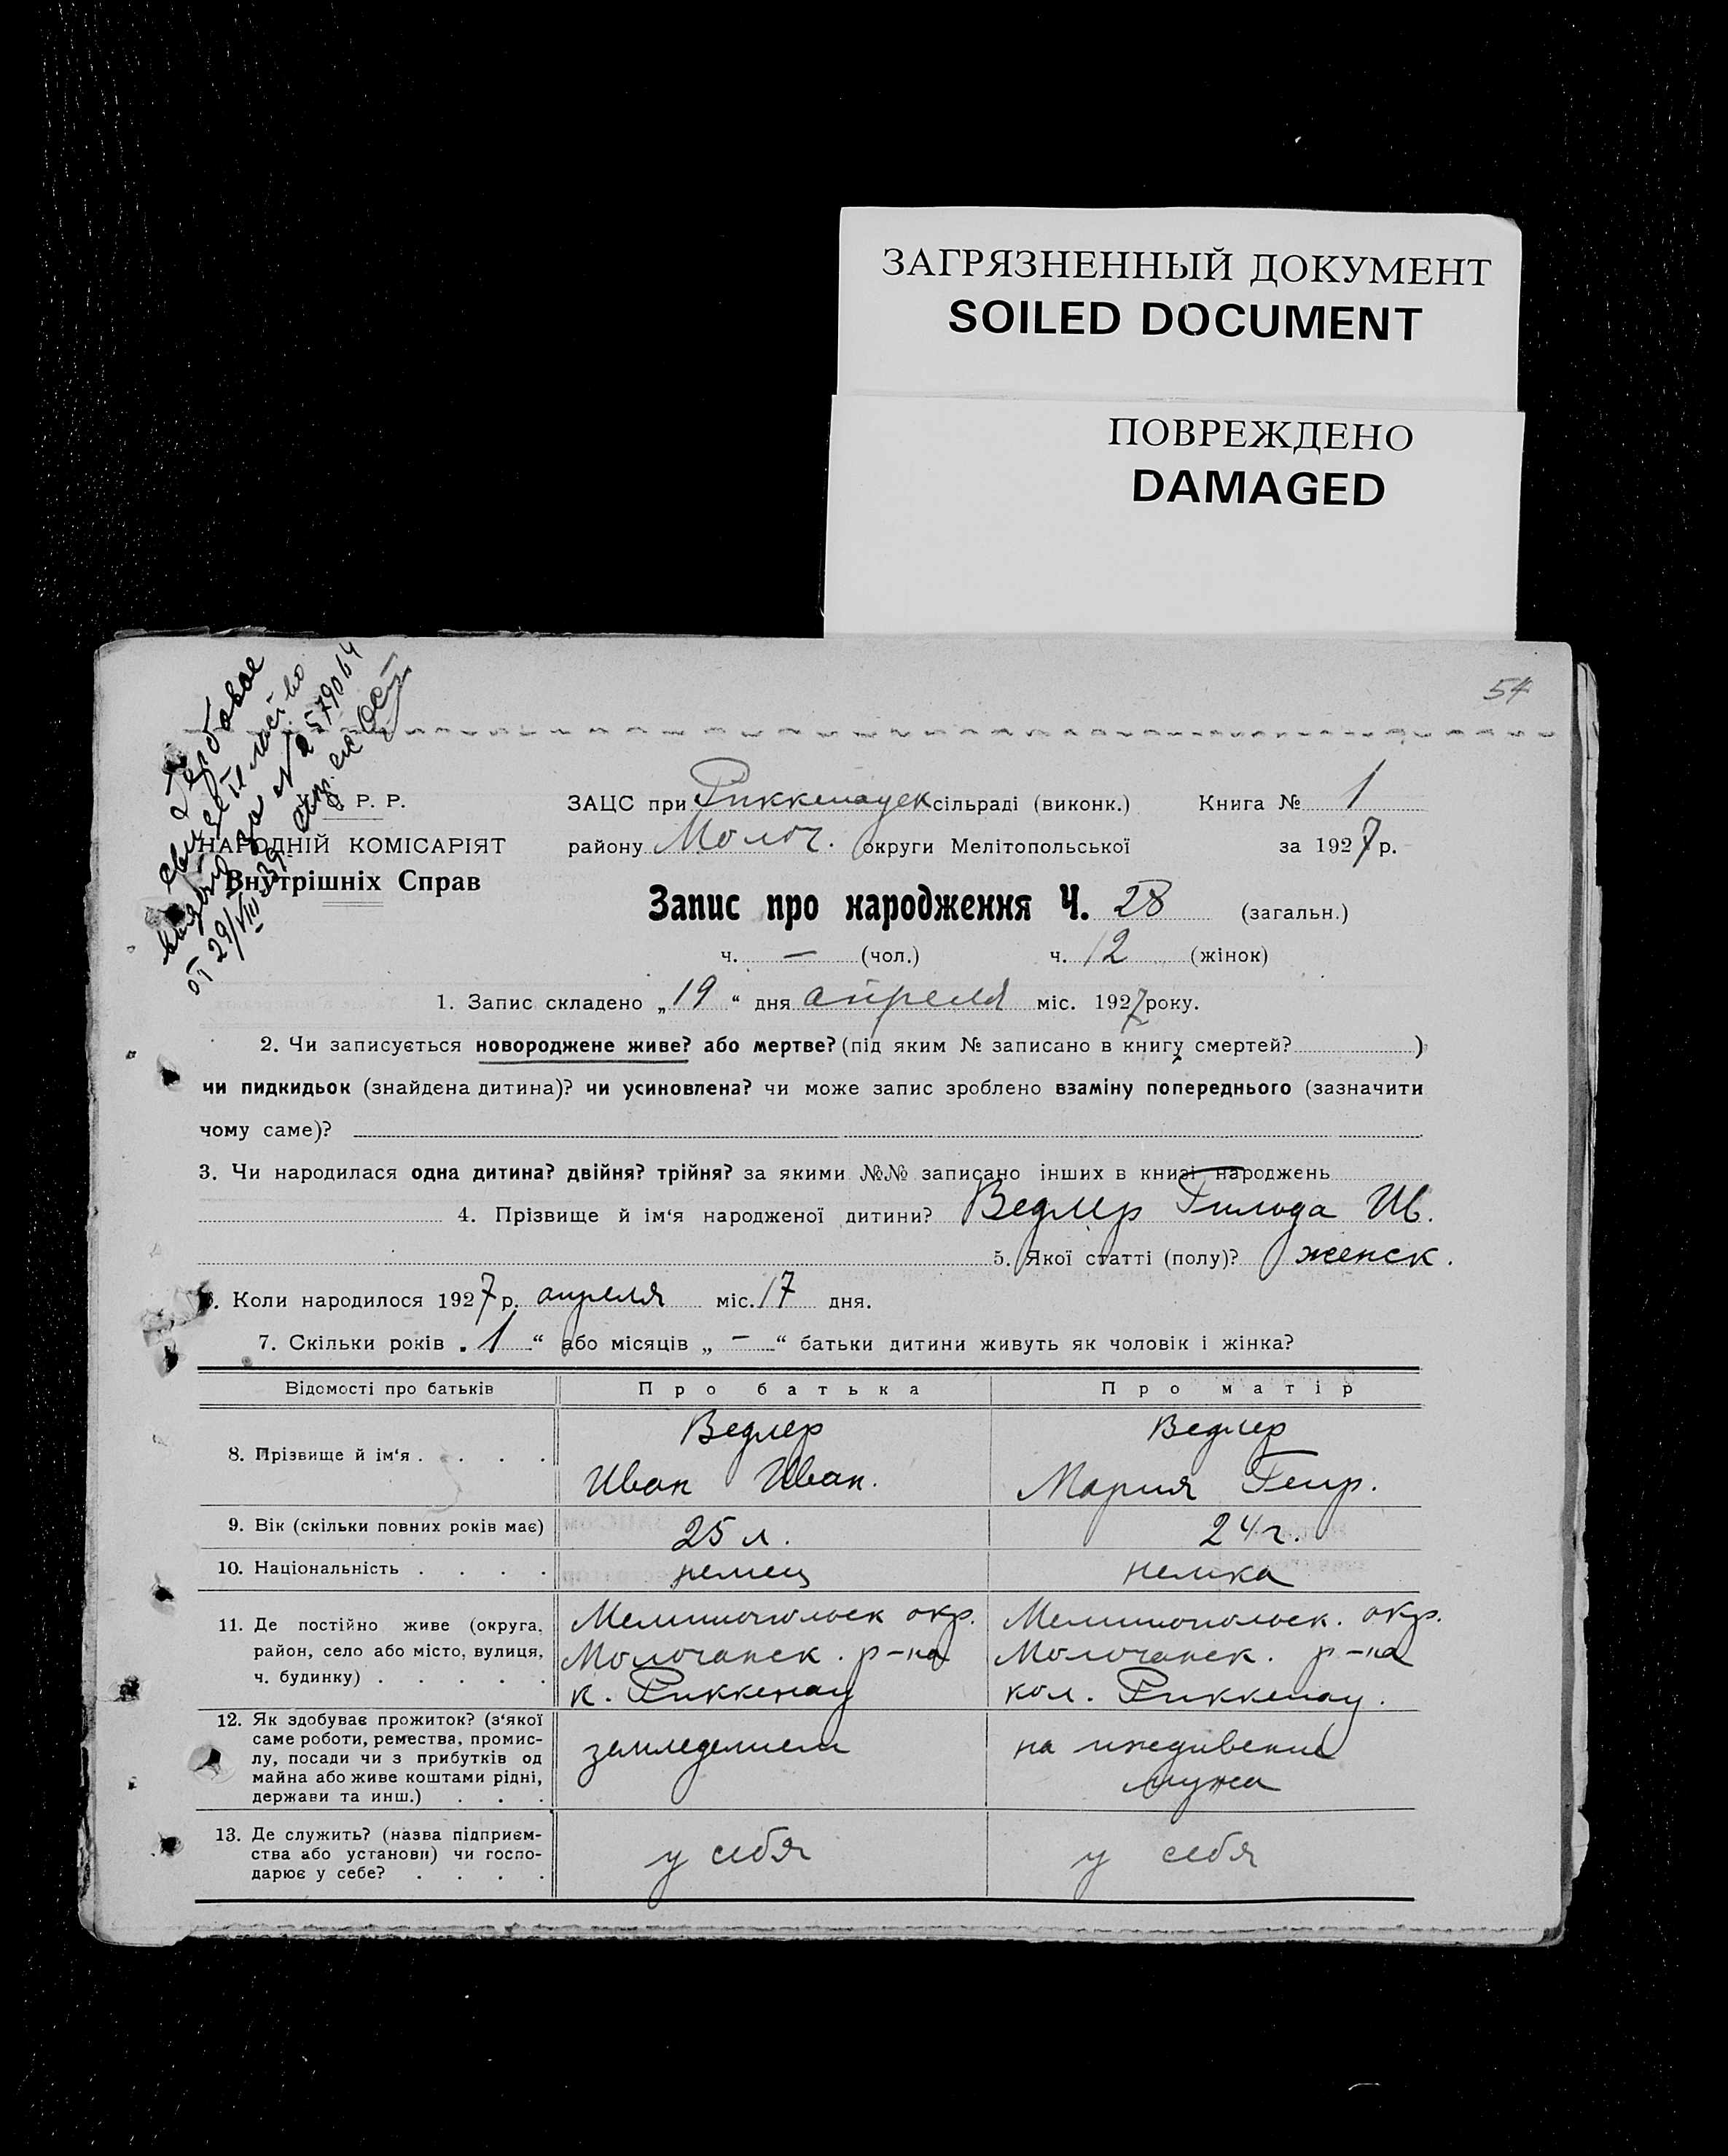 ЗАГРЯЗНЕННЫЙ ДОКУМЕНТ
SOILED DOCUMENT
ПОВРЕЖДЕНО
DAMAGED
54
Гербовое
свидетельство
выдано за № 579064
от 29/VIII-39
Р. Р.
НАРОДНІЙ КОМІСАРІЯТ
Внутрішніх Справ
ЗАЦС при Риккенауск сільраді (виконк.) Книга № 1
району Молоч. округи Мелітопольської за 1927 р.
Запис про народження Ч. 28 (загальн.)
ч. — (чол.) ч. 12 (жінок)
1. Запис складено „19“ дня апреля міс. 1927 року.
2. Чи записується новороджене живе? або мертве? (під яким № записано в книгу смертей? )
чи пидкидьок (знайдена дитина)? чи усиновлена? чи може запис зроблено взаміну попереднього (зазначити
чому саме)?
3. Чи народилася одна дитина? двійня? трійня? за якими №№ записано інших в книзі народжень
4. Прізвище й ім'я народженої дитини? Ведлер Гильда Ив.
5. Якої статті (полу)? женск.
6. Коли народилося 1927 р. апреля міс. 17 дня.
7. Скільки років „1“ або місяців „—“ батьки дитини живуть як чоловік і жінка?
Відомості про батьків Про батька Про матір
8. Прізвище й ім'я . . . . Ведлер Иван Иван. Ведлер Мария Генр.
9. Вік (скільки повних років має) 25 л. 24 г.
10. Національність . . . . немец немка
11. Де постійно живе (округа, Мелитопольск окр. Мелитопольск. окр.
район, село або місто, вулиця, Молочанск. р-на Молочанск. р-на
ч. будинку) . . . . . к. Риккенау кол. Риккенау.
12. Як здобуває прожиток? (з'якої
саме роботи, ремества, промис- земледелием на иждивении
лу, посади чи з прибутків од мужа
майна або живе коштами рідні,
держави та инш.) . . .
13. Де служить? (назва підприєм-
ства або установи) чи госпо- у себя у себя
дарює у себе? . . . .